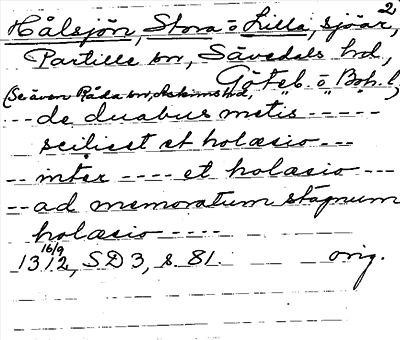 2,
Hålsjön, Stora o Lilla, sjöar,
Partille sn, Sävedals hd,
Göteb. o Boh. l.
(Se även Råda sn, Askims hd,)
--- de duabus metis -----
scilicet et holæsio ---
-- inter ---- et holæsio ----
-- ad memoratum stagnum
holæsio -----
1312 16/9, SD 3, s 81. orig.